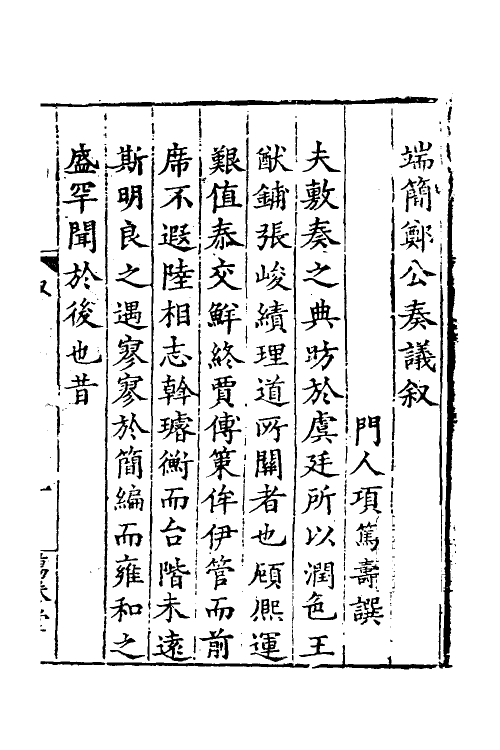 端簡鄭公奏議叙
門人項篤壽譔
夫敷奏之典昉於虞廷所以潤色王
猷鋪張峻績理道所關者也顧熈運
艱值泰交鮮終賈傅策侔伊管而前
席不遐陸相志斡璿衡而台階未遠
斯明良之遇寥寥於簡編而雍和之
盛罕聞於後也昔